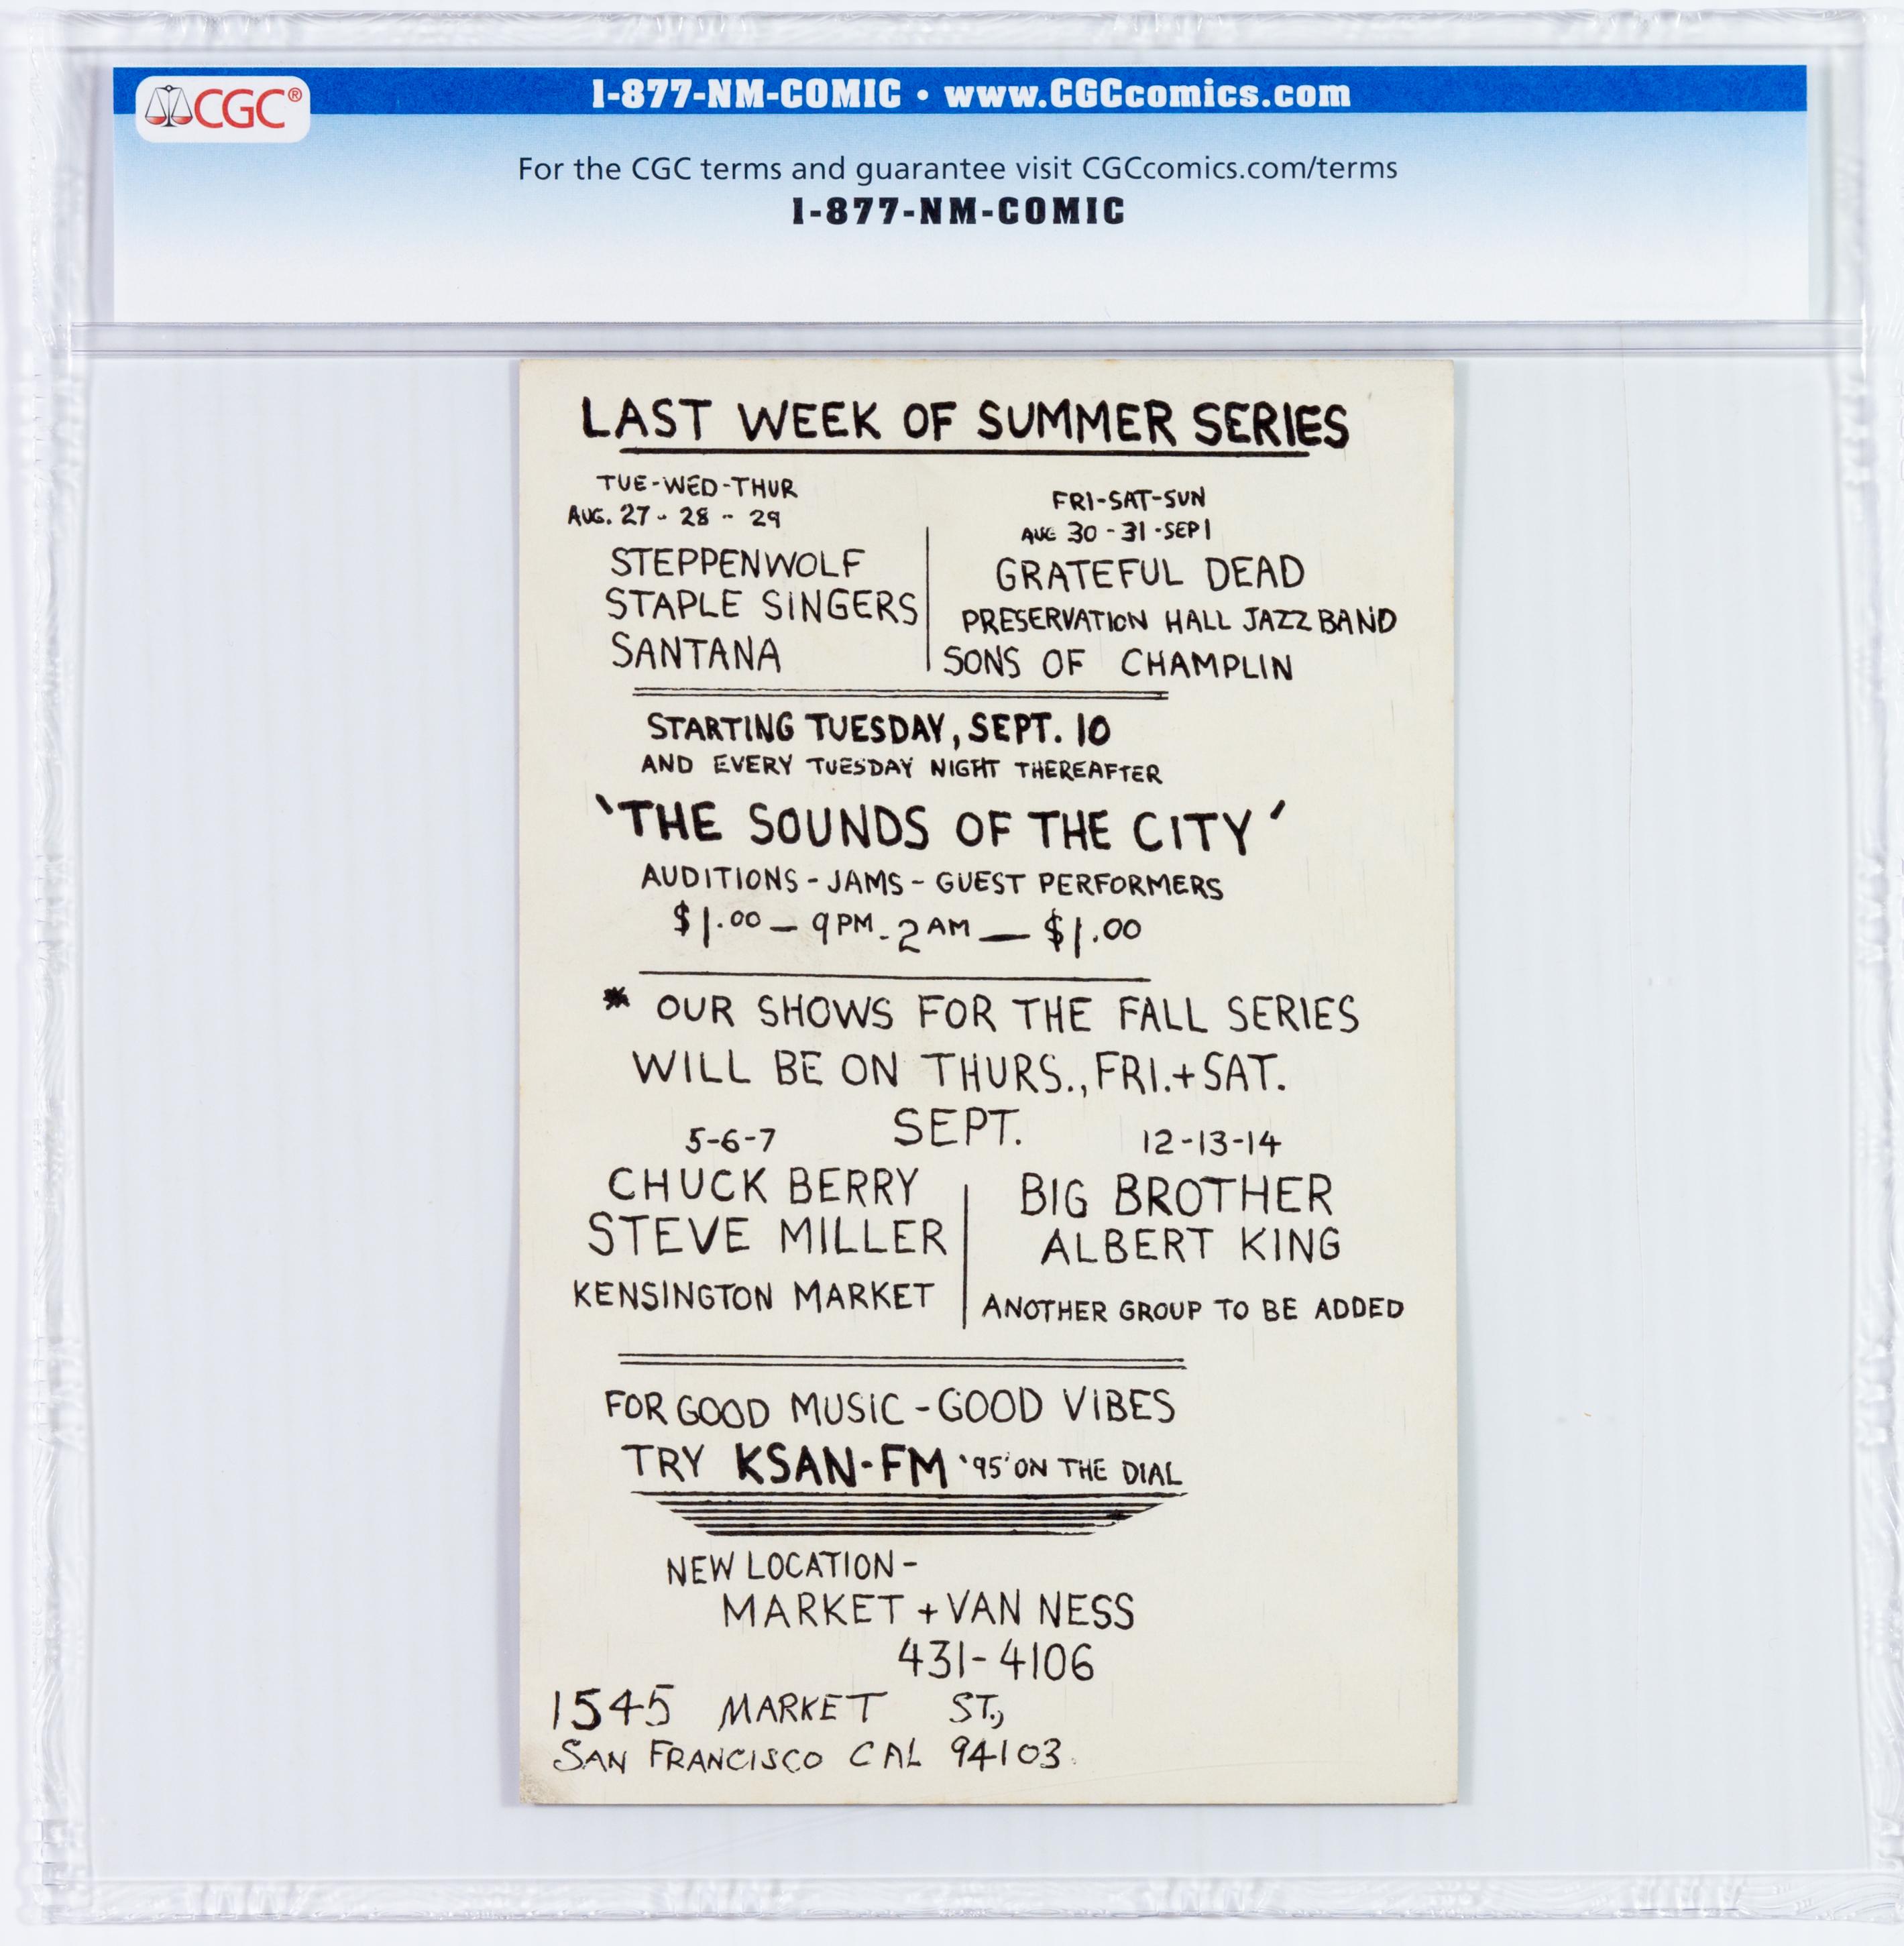 CGC®
1-877-NM-COMIC • www.CGCcomics.com
For the CGC terms and guarantee visit CGCcomics.com/terms
1-877-NM-COMIC
LAST WEEK OF SUMMER SERIES
TUE-WED-THUR
AUG. 27 - 28 - 29
STEPPENWOLF
STAPLE SINGERS
SANTANA
FRI-SAT-SUN
AUG 30 - 31 - SEP 1
GRATEFUL DEAD
PRESERVATION HALL JAZZ BAND
SONS OF CHAMPLIN
STARTING TUESDAY, SEPT. 10
AND EVERY TUESDAY NIGHT THEREAFTER
'THE SOUNDS OF THE CITY'
AUDITIONS - JAMS - GUEST PERFORMERS
$1.00 — 9PM - 2AM — $1.00
* OUR SHOWS FOR THE FALL SERIES
WILL BE ON THURS., FRI. + SAT.
SEPT.
5-6-7
CHUCK BERRY
STEVE MILLER
KENSINGTON MARKET
12-13-14
BIG BROTHER
ALBERT KING
ANOTHER GROUP TO BE ADDED
FOR GOOD MUSIC - GOOD VIBES
TRY KSAN-FM '95' ON THE DIAL
NEW LOCATION -
MARKET + VAN NESS
431-4106
1545 MARKET ST.,
SAN FRANCISCO CAL 94103.